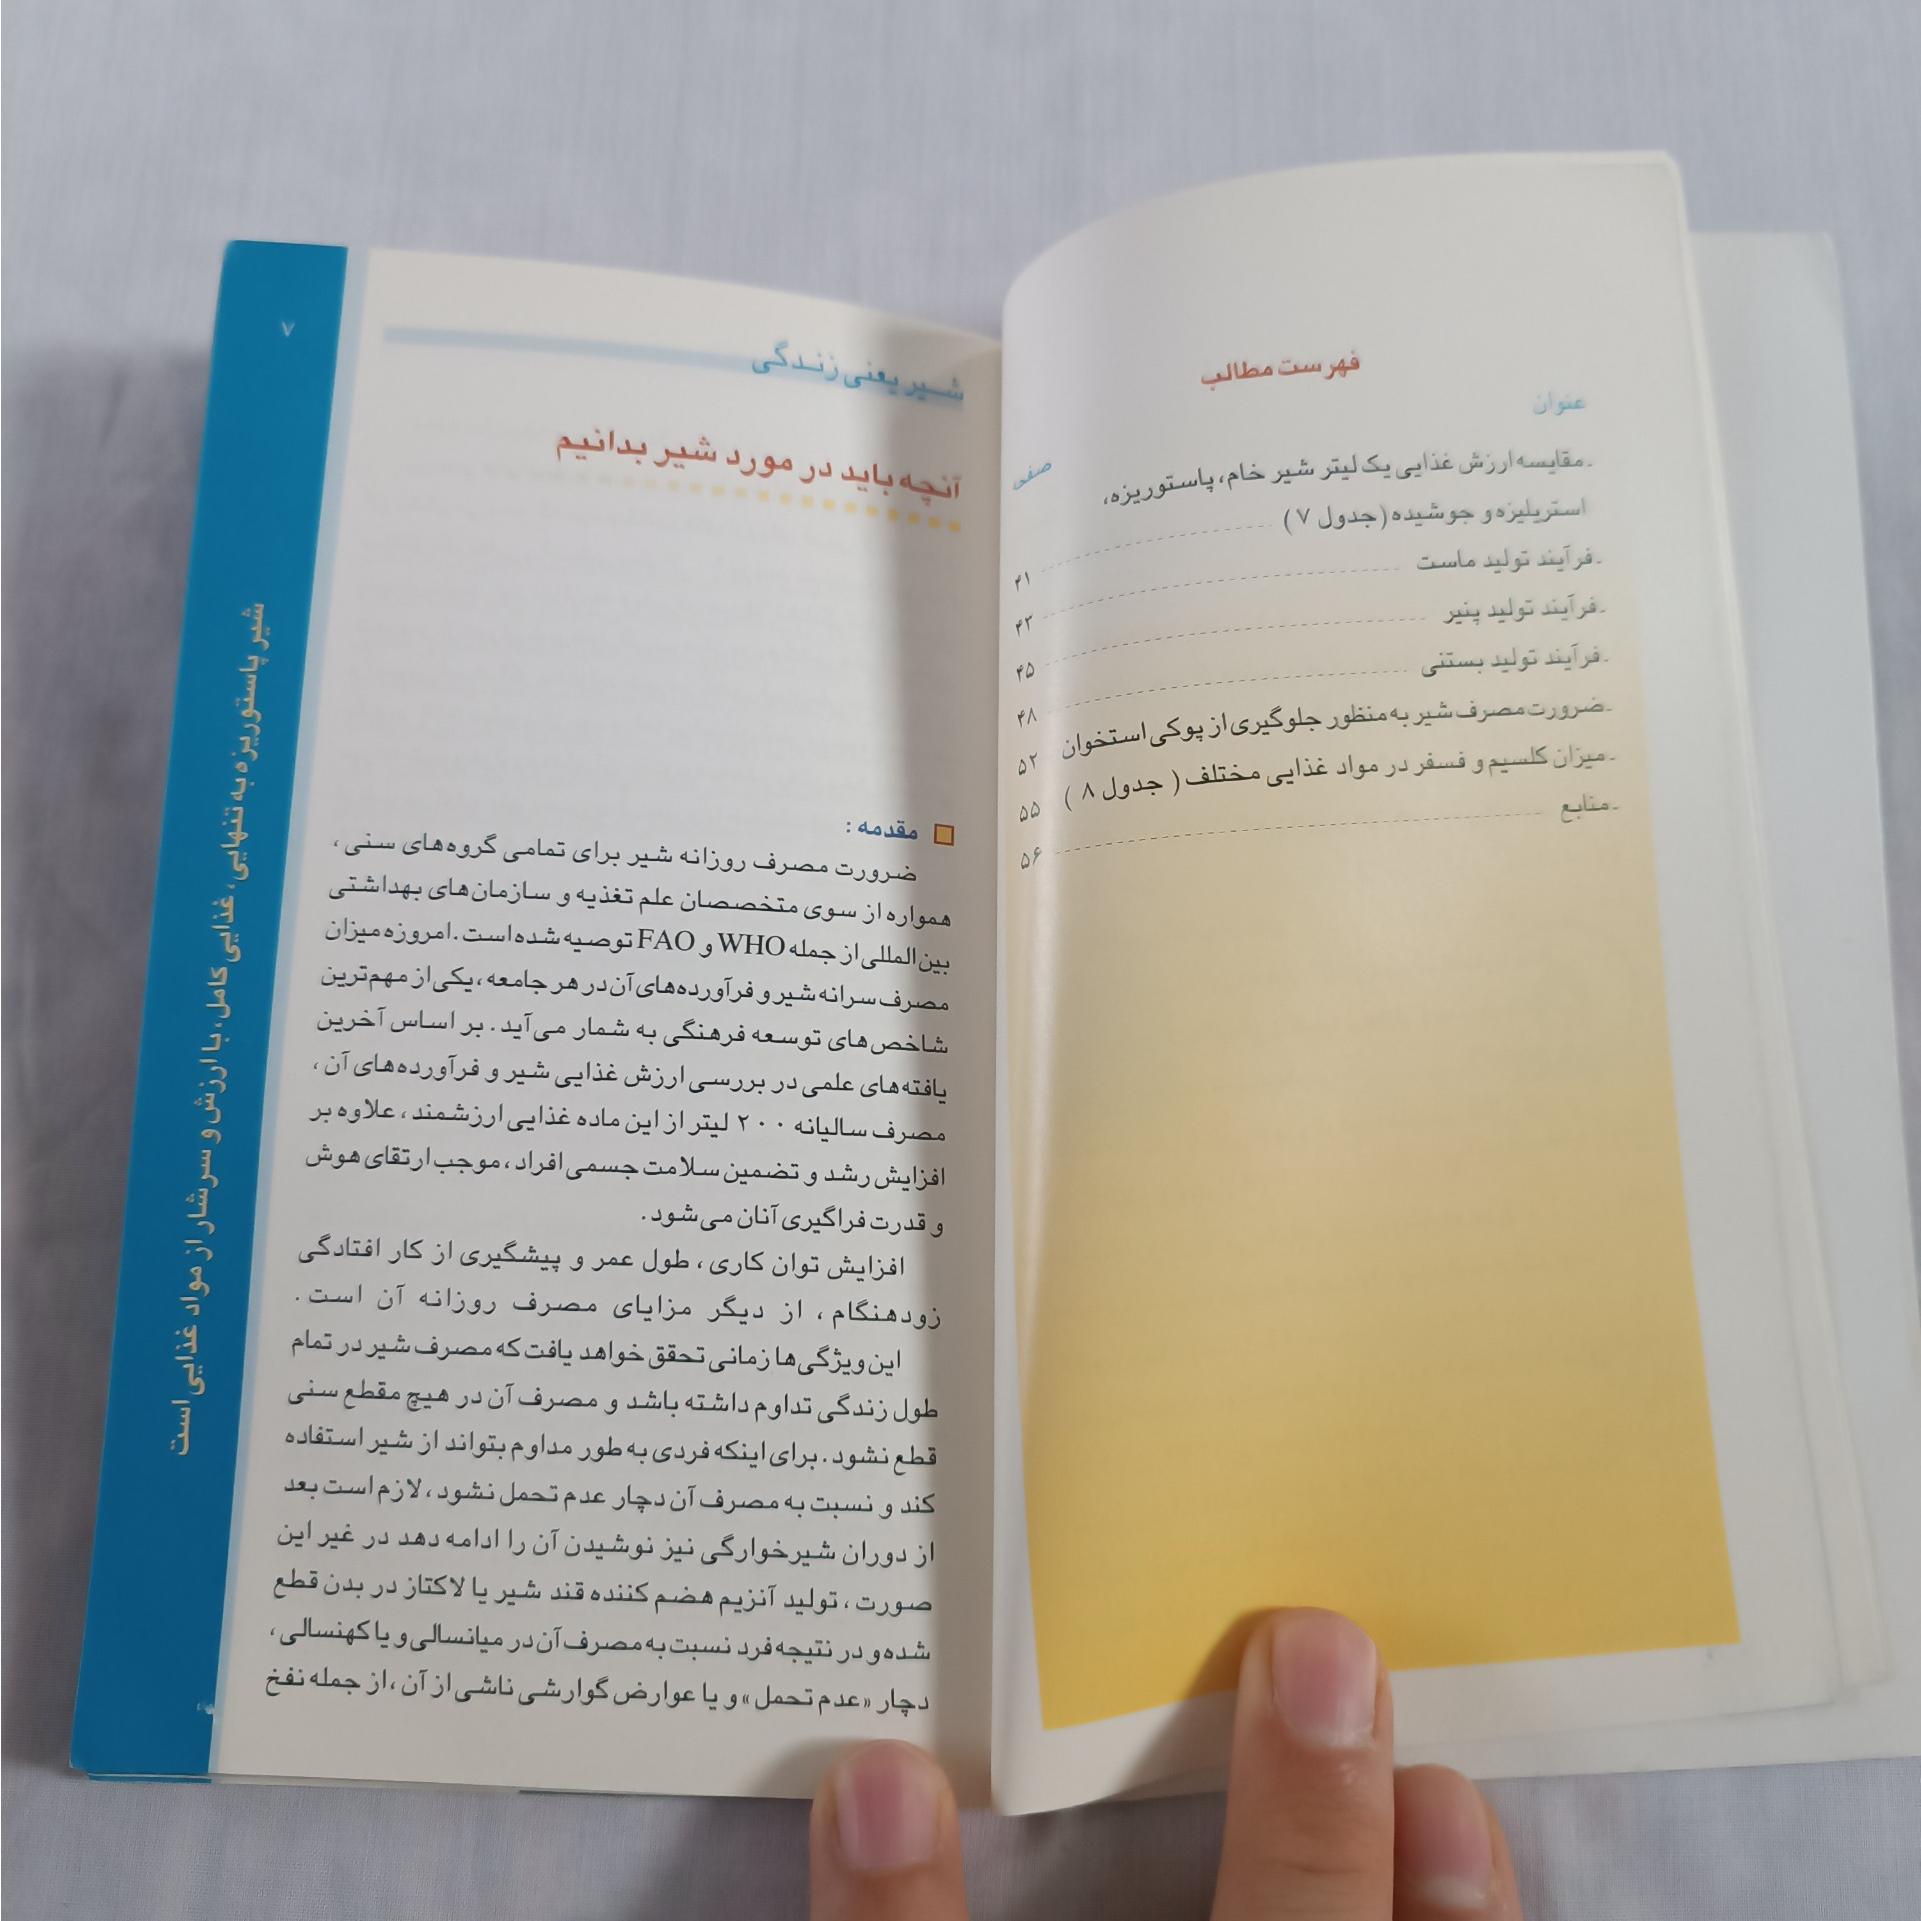 فهرست مطالب
عنوان
صفحه
-مقایسه ارزش غذایی یک لیتر شیر خام، پاستوریزه،
استریلیزه و جوشیده (جدول ۷) ۴۱
-فرآیند تولید ماست ۴۳
-فرآیند تولید پنیر ۴۵
-فرآیند تولید بستنی ۴۸
-ضرورت مصرف شیر به منظور جلوگیری از پوکی استخوان ۵۲
-میزان کلسیم و فسفر در مواد غذایی مختلف ( جدول ۸ ) ۵۵
-منابع ۵۶
۷
شیر یعنی زندگی
آنچه باید در مورد شیر بدانیم
مقدمه :
ضرورت مصرف روزانه شیر برای تمامی گروه‌های سنی ،
همواره از سوی متخصصان علم تغذیه و سازمان‌های بهداشتی
بین‌المللی از جمله WHO و FAO توصیه شده است. امروزه میزان
مصرف سرانه شیر و فرآورده‌های آن در هر جامعه ، یکی از مهم‌ترین
شاخص‌های توسعه فرهنگی به شمار می‌آید. بر اساس آخرین
یافته‌های علمی در بررسی ارزش غذایی شیر و فرآورده‌های آن ،
مصرف سالیانه ۲۰۰ لیتر از این ماده غذایی ارزشمند ، علاوه بر
افزایش رشد و تضمین سلامت جسمی افراد ، موجب ارتقای هوش
و قدرت فراگیری آنان می‌شود.
افزایش توان کاری ، طول عمر و پیشگیری از کار افتادگی
زودهنگام ، از دیگر مزایای مصرف روزانه آن است.
این ویژگی‌ها زمانی تحقق خواهد یافت که مصرف شیر در تمام
طول زندگی تداوم داشته باشد و مصرف آن در هیچ مقطع سنی
قطع نشود. برای اینکه فردی به طور مداوم بتواند از شیر استفاده
کند و نسبت به مصرف آن دچار عدم تحمل نشود ، لازم است بعد
از دوران شیرخوارگی نیز نوشیدن آن را ادامه دهد در غیر این
صورت ، تولید آنزیم هضم کننده قند شیر یا لاکتاز در بدن قطع
شده و در نتیجه فرد نسبت به مصرف آن در میانسالی و یا کهنسالی ،
دچار «عدم تحمل» و یا عوارض گوارشی ناشی از آن ، از جمله نفخ
شیر پاستوریزه به تنهایی، غذایی کامل، با ارزش و سرشار از مواد غذایی است